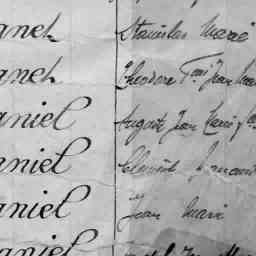 anet Stanislas Marie
anet Théodore Fois Jean Ma
aniel Auguste Jean Louis
aniel Clément
aniel Jean Marie
aniel